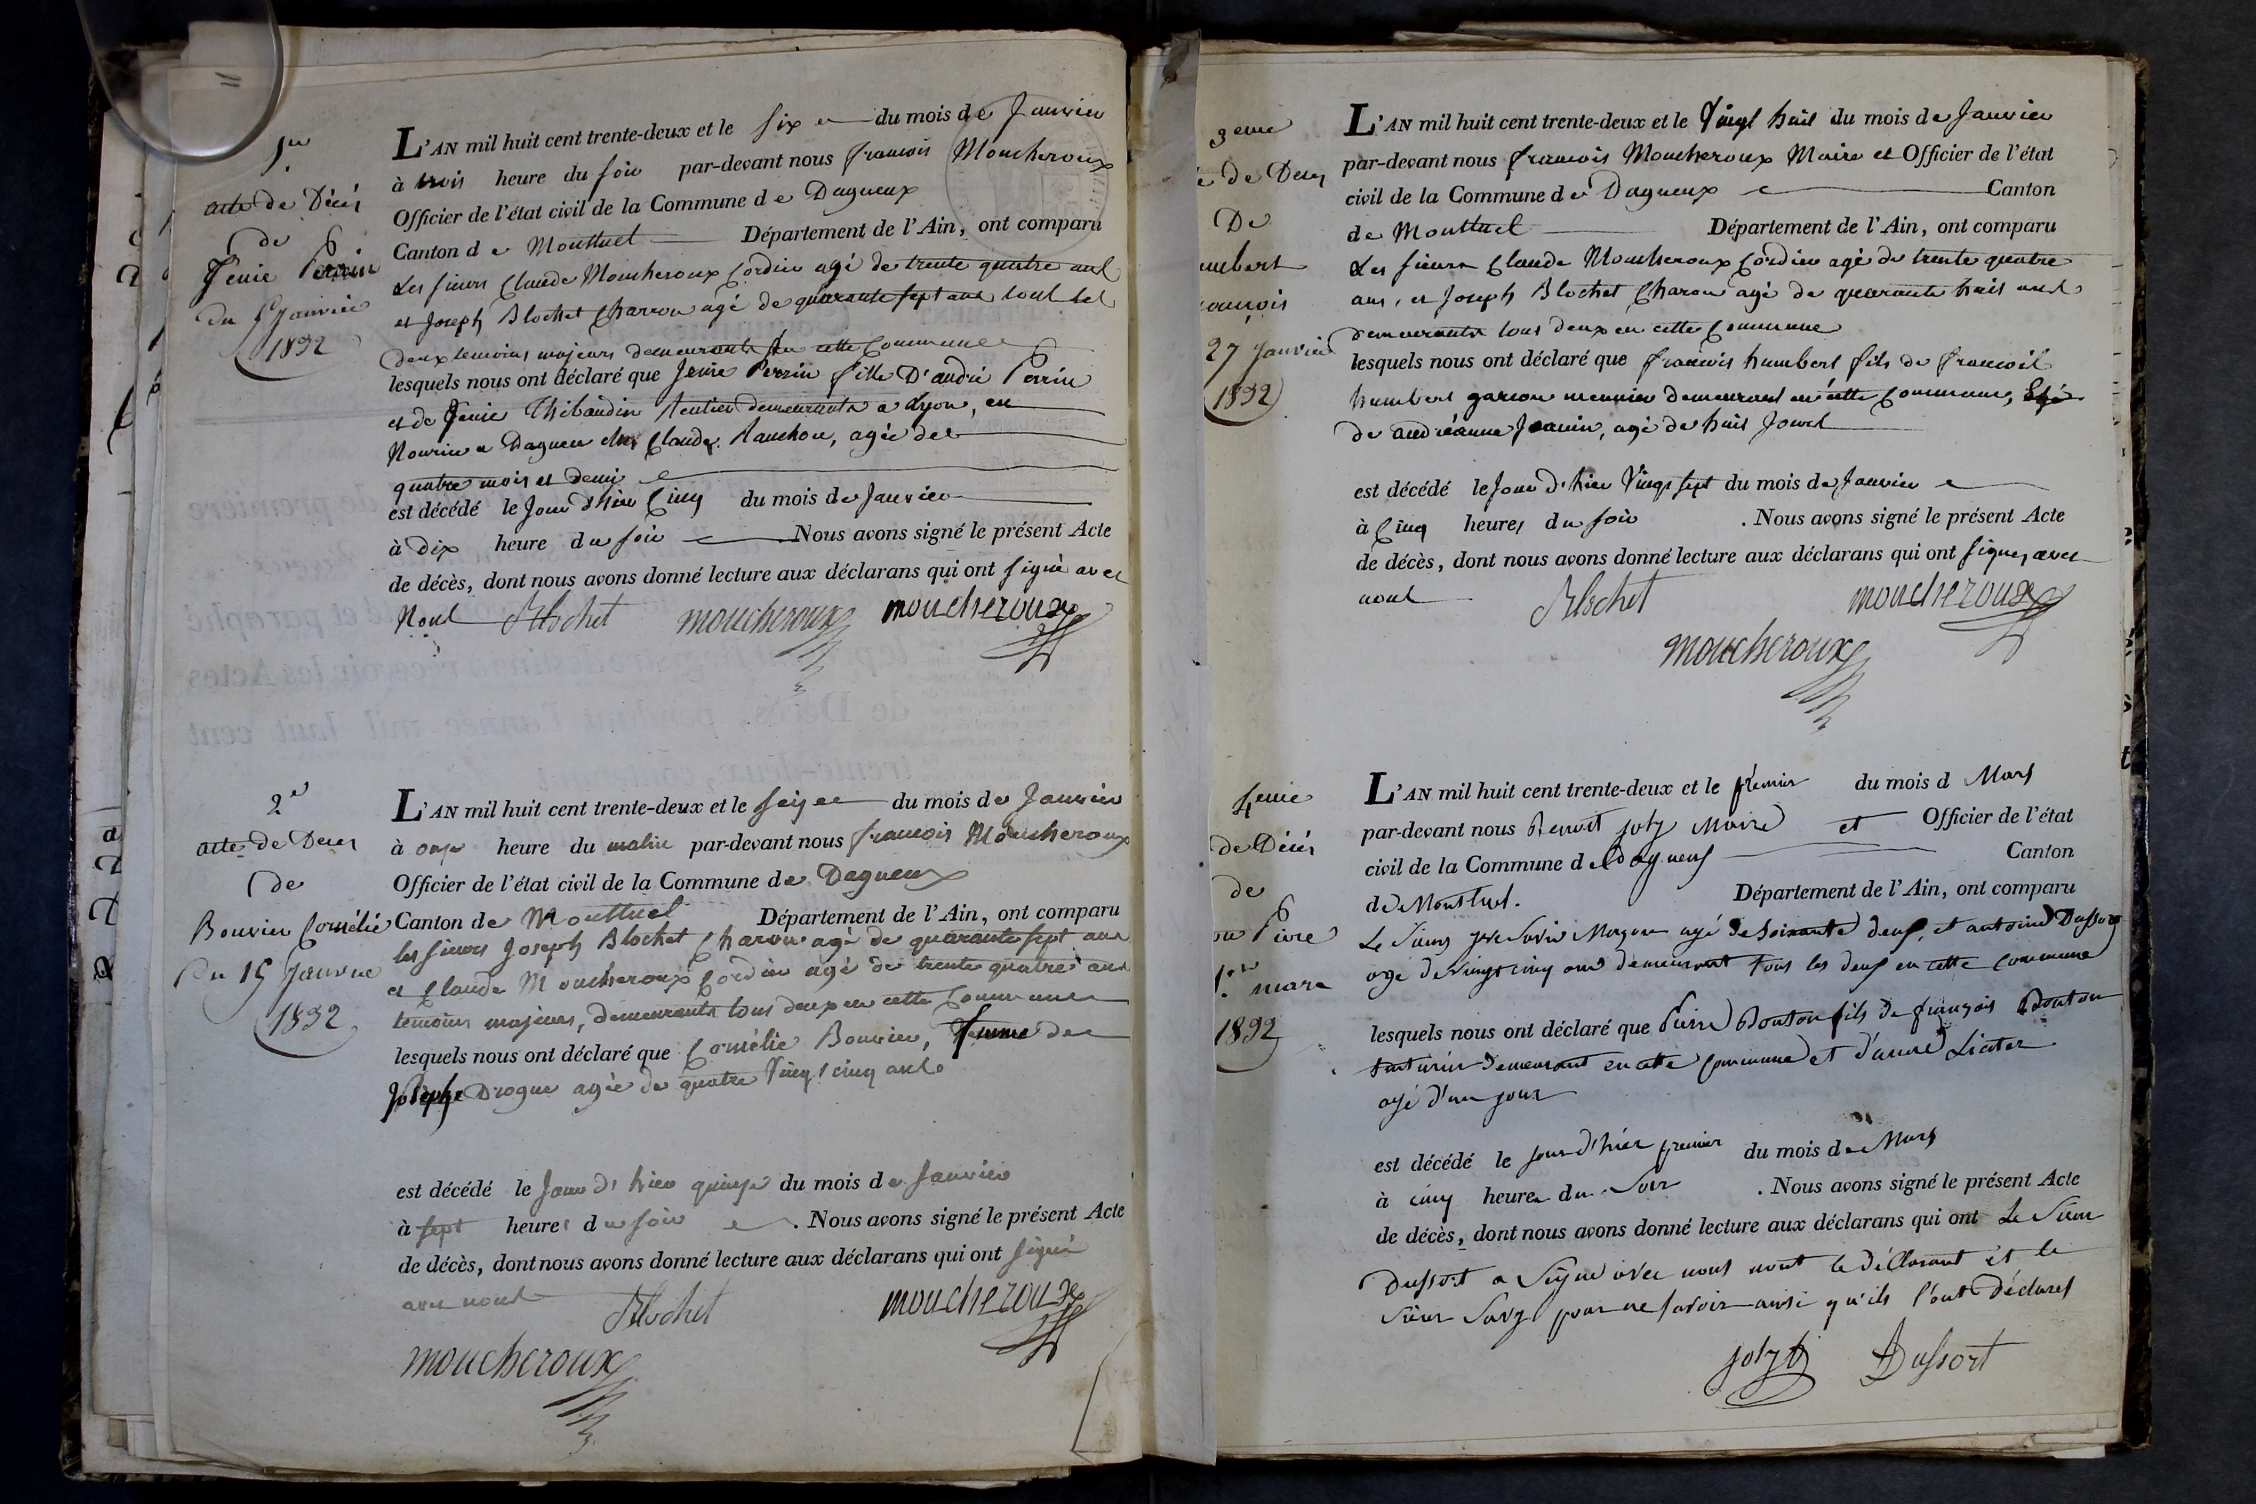 1er
acte de Décés
de
Jenie Perrin
du 5 Janvier
1832
L'AN mil huit cent trente-deux et le six du mois de Janvier
à trois heure du soir par-devant nous francois Moucheroux
Officier de l'état civil de la Commune de Dagneux
Canton de Montluel Département de l'Ain, ont comparu
Les sieurs Claude Moucheroux Cordier agé de trente quatre ans
et Joseph Blochet Charron agé de quarante sept ans tout les
deux temoins majeurs demeurants en cette Commune
lesquels nous ont déclaré que Jenie Perrin fille D'andré Perrin
et de Jenie Thibaudin Rentier demeurants a Lyon, en
Nourice a Dagneu chez Claude Rauchon, agée de
quatre mois et demi
est décédé le Jour d'hier Cinq du mois de Janvier
à dix heure du soir Nous avons signé le présent Acte
de décès, dont nous avons donné lecture aux déclarans qui ont signé avec
Nous Blochet moucheroux moucheroux
2e
acte de Deces
de
Bouvier Cornélie
Du 15 Janvier
1832
L'AN mil huit cent trente-deux et le seize du mois de Janvier
à onze heure du matin par-devant nous francois Moucheroux
Officier de l'état civil de la Commune de Dagneux
Canton de Montluel Département de l'Ain, ont comparu
les sieurs Joseph Blochet Charon agé de quarante sept ans
et Claude Moucheroux Cordier agé de trente quatre ans
temoins majeurs, demeurants tous deux en cette Commune
lesquels nous ont déclaré que Cornélie Bouvier, femme de
Joseph Drogue agée de quatre Vingt cinq ans
est décédé le Jour d'hier quinze du mois de Janvier
à sept heures du soir . Nous avons signé le présent Acte
de décès, dont nous avons donné lecture aux déclarans qui ont signé
avec nous
Blochet moucheroux
moucheroux
3eme
de Deces
De
umbert
ancois
27 Janvier
1832
L'AN mil huit cent trente-deux et le Vingt huit du mois de Janvier
par-devant nous francois Moucheroux Maire et Officier de l'état
civil de la Commune de Dagneux Canton
de Montluel Département de l'Ain, ont comparu
Les sieurs Claude Moucheroux Cordier agé de trente quatre
ans, et Joseph Blochet Charon agé de quarante huit ans
demeurants tous deux en cette Commune
lesquels nous ont déclaré que francois humbert fils de francois
humbert garcon meunier demeurant en cette Commune,
de andréanne Jeanin, agé de huit Jours
est décédé le Jour d'hier Vingt sept du mois de Janvier
à Cinq heures du soir . Nous avons signé le présent Acte
de décès, dont nous avons donné lecture aux déclarans qui ont signez avec
nous Blochet moucheroux
moucheroux
4eme
de Décés
de
on Pierre
1er mars
1832
L'AN mil huit cent trente-deux et le premier du mois d Mars
par-devant nous Benoit Joly Maire et Officier de l'état
civil de la Commune de Dagneux Canton
de Montluel. Département de l'Ain, ont comparu
Le Sieurs Maçon agé de soixante deux, et antoine Dussort
age de vingt cinq ans demeurant tous les deux en cette commune
lesquels nous ont déclaré que Pierre Bouton fils de françois Bouton
demeurant en cette commune et d'anne
agé d'un jour
est décédé le jour d'hier premier du mois de Mars
à cinq heures du Soir . Nous avons signé le présent Acte
de décès, dont nous avons donné lecture aux déclarans qui ont Le Sieur
Dussort a Signé avec nous nont le déclarant et le
sieur pour ne savoir ainsi qu'ils l'ont Déclarés
Joly Dussort